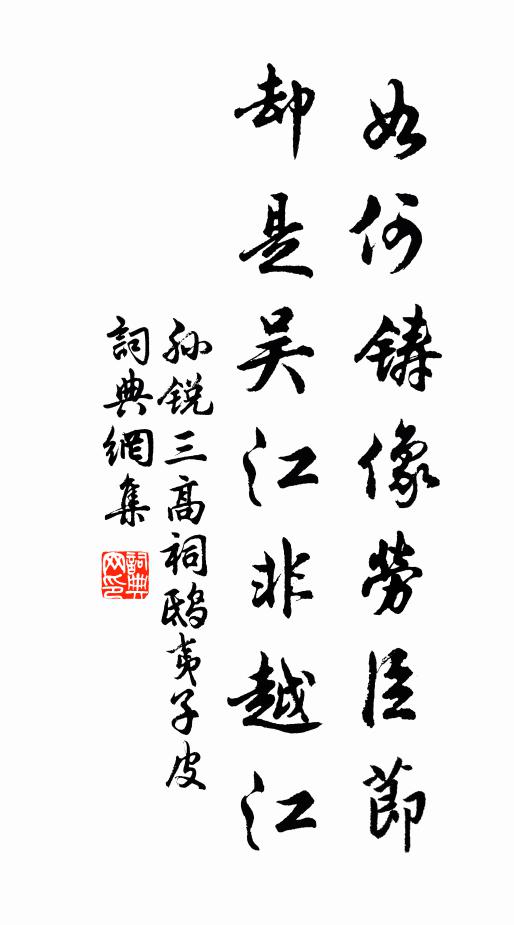 如何鑄像勞臣節
却是吴江非越江
孫銳三高祠鴟夷子皮
詞典網集
詞典網印